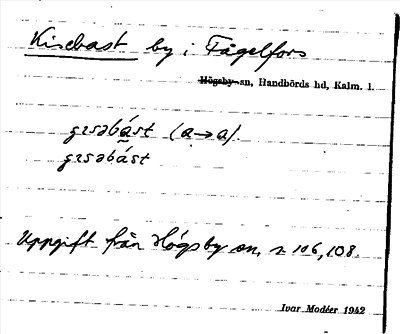 Kisebast by i Fågelfors
Högsby sn, Handbörds hd, Kalm. l.
gɪsəbást (a→a).
gɪsəbást
Uppgift från Högsby sn, s 106, 108.
Ivar Modéer 1942